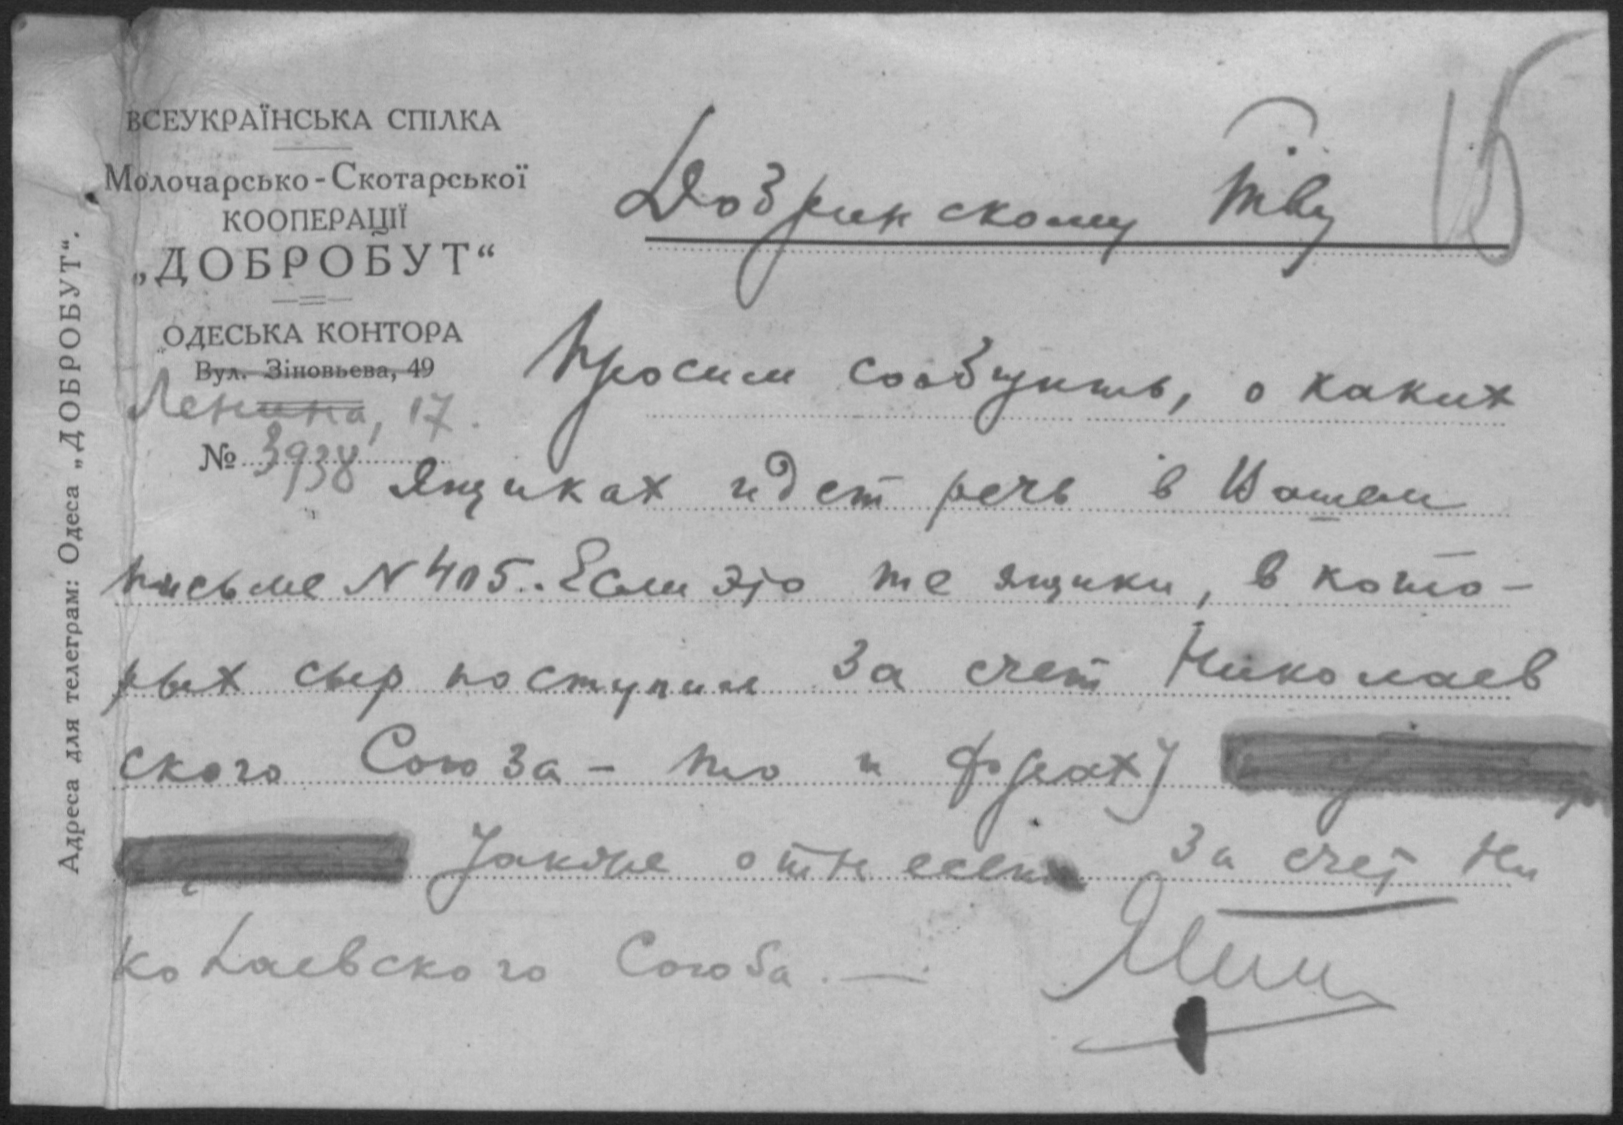 ВСЕУКРАЇНСЬКА СПІЛКА
Молочарсько-Скотарської
КООПЕРАЦІЇ
„ДОБРОБУТ“
ОДЕСЬКА КОНТОРА
Вул. Зіновьева, 49
Ленина, 17.
№ 3938
Адреса для телеграм: Одеса „ДОБРОБУТ“.
Добринскому Тву
Просим сообщить, о каких
ящиках идет речь в Вашем
письме N 405. Если это те ящики, в кото-
рых сыр поступил за счет Николаев
ского Союза – то и
также за счет Ни
колаевского Союза. —